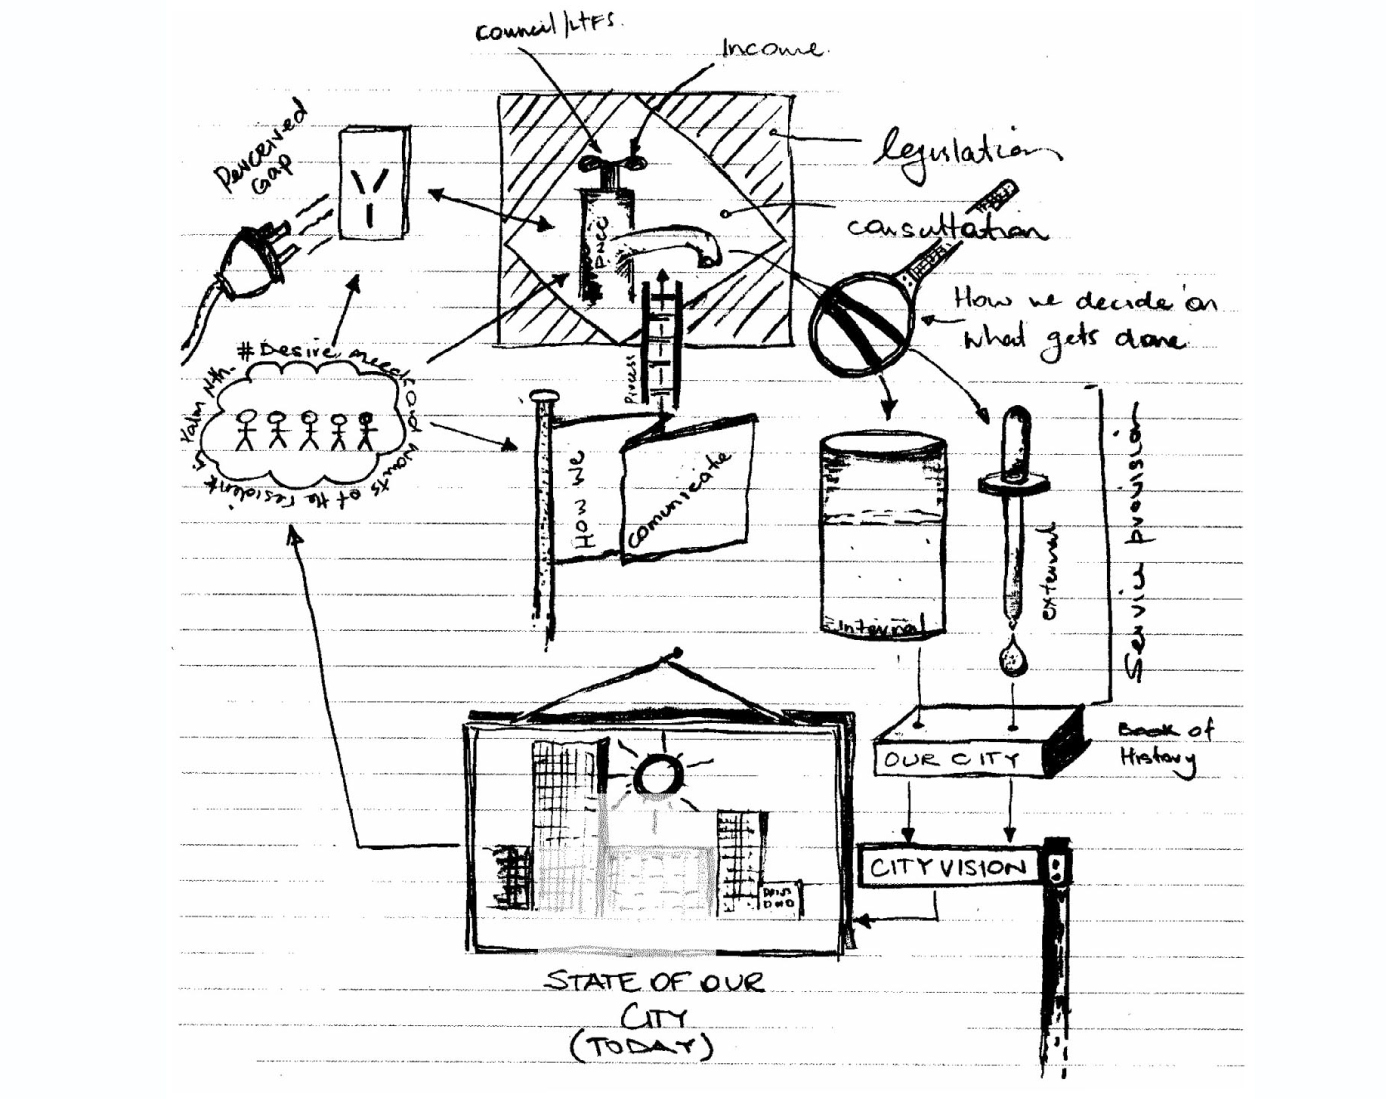 Council/LTFS.
Income.
Perceived
Gap
legislation
consultation
PNCC
How we decide on
what gets done
Process
# Desire, needs and wants of the residents
Palm Nth.
How we
comunicate
internal
external
Service provision
OUR CITY
Book of
History
CITY VISION
STATE OF OUR
CITY
(TODAY)